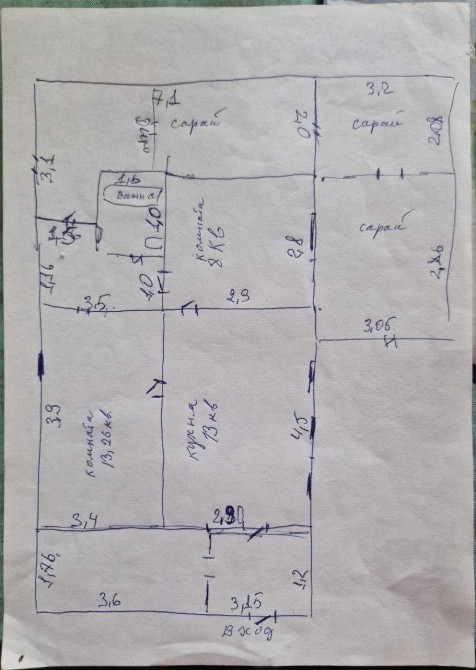 3,2
7,1
сарай
2,0
сарай
2,08
3,1
1,6
Ванна
комната
8 кв
1,0
2,8
сарай
2,26
1,16
1,0
3,5
2,9
3,06
3,9
комната
13,26 кв
кухня
13 кв
4,5
3,4
2,90
1,76
1,2
3,6
3,15
Вход